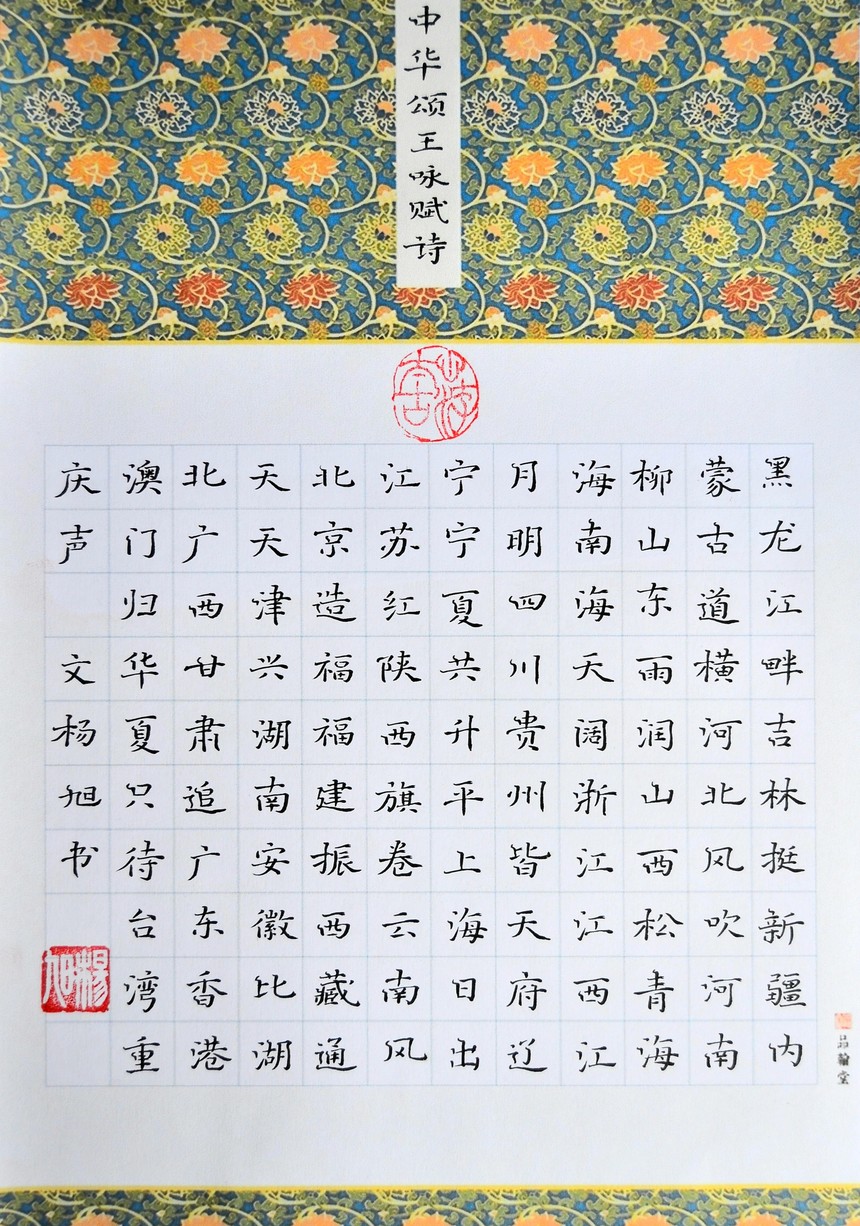 中华颂王咏赋诗
黑龙江畔吉林挺新疆内
蒙古道横河北风吹河南
柳山东雨润山西松青海
海南海天阔浙江江西江
月明四川贵州皆天府辽
宁宁夏共升平上海日出
江苏红陕西旗卷云南风
北京造福福建振西藏通
天天津兴湖南安徽比湖
北广西甘肃追广东香港
澳门归华夏只待台湾重
庆声 文杨旭书
杨旭
品翰堂